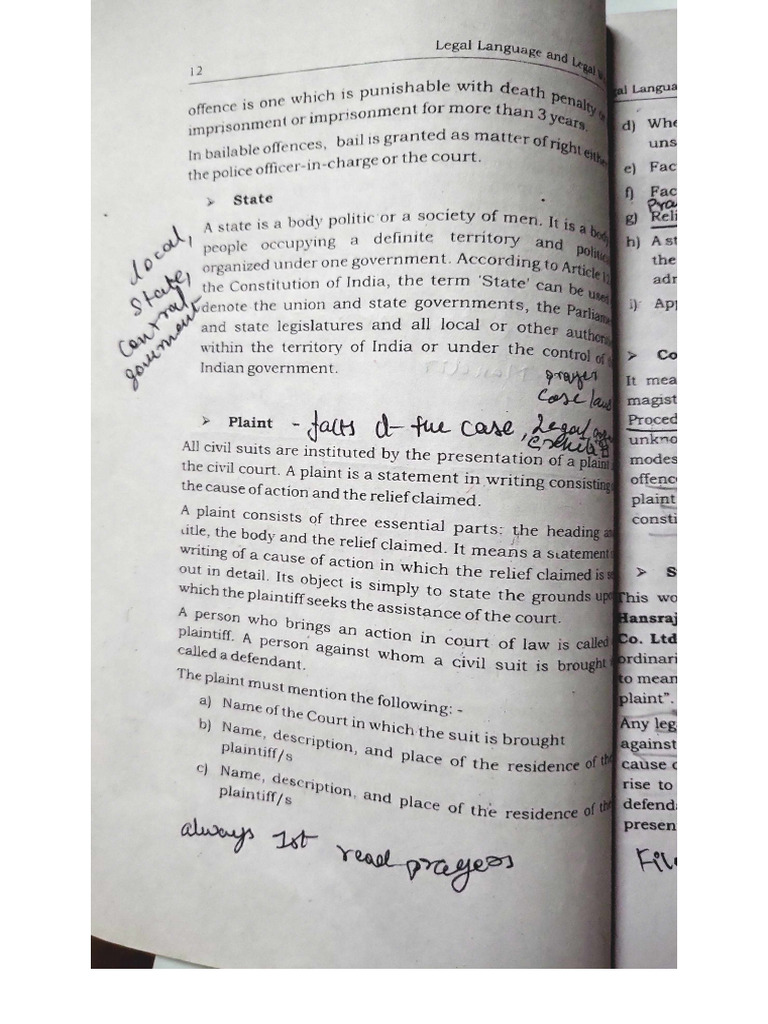 12
Legal Language and Legal
offence is one which is punishable with death penalty
imprisonment or imprisonment for more than 3 years.
In bailable offences, bail is granted as matter of right
the police officer-in-charge or the court.
➢ State
A state is a body politic or a society of men. It is a
people occupying a definite territory and
organized under one government. According to Article
the Constitution of India, the term 'State' can be used
denote the union and state governments, the
and state legislatures and all local or other
within the territory of India or under the control of
Indian government.
local,
state,
central
government
prayer
case law
➢ Plaint - facts of the case, Legal
All civil suits are instituted by the presentation of a plaint
the civil court. A plaint is a statement in writing consisting
the cause of action and the relief claimed.
A plaint consists of three essential parts: the heading
title, the body and the relief claimed. It means a statement
writing of a cause of action in which the relief claimed is
out in detail. Its object is simply to state the grounds
which the plaintiff seeks the assistance of the court.
A person who brings an action in court of law is called
plaintiff. A person against whom a civil suit is brought
called a defendant.
The plaint must mention the following: -
a) Name of the Court in which the suit is brought
b) Name, description, and place of the residence of the
plaintiff/s
c) Name, description, and place of the residence of the
plaintiff/s
always 1st read prayers
d)
e)
f)
g)
h) A
the
i)
➢
It
unkno
modes
offenc
plaint
consti
➢ S
This wo
Hansraj
Co. Ltd
ordinari
to mean
plaint".
Any leg
against
cause
rise to
defend
presen